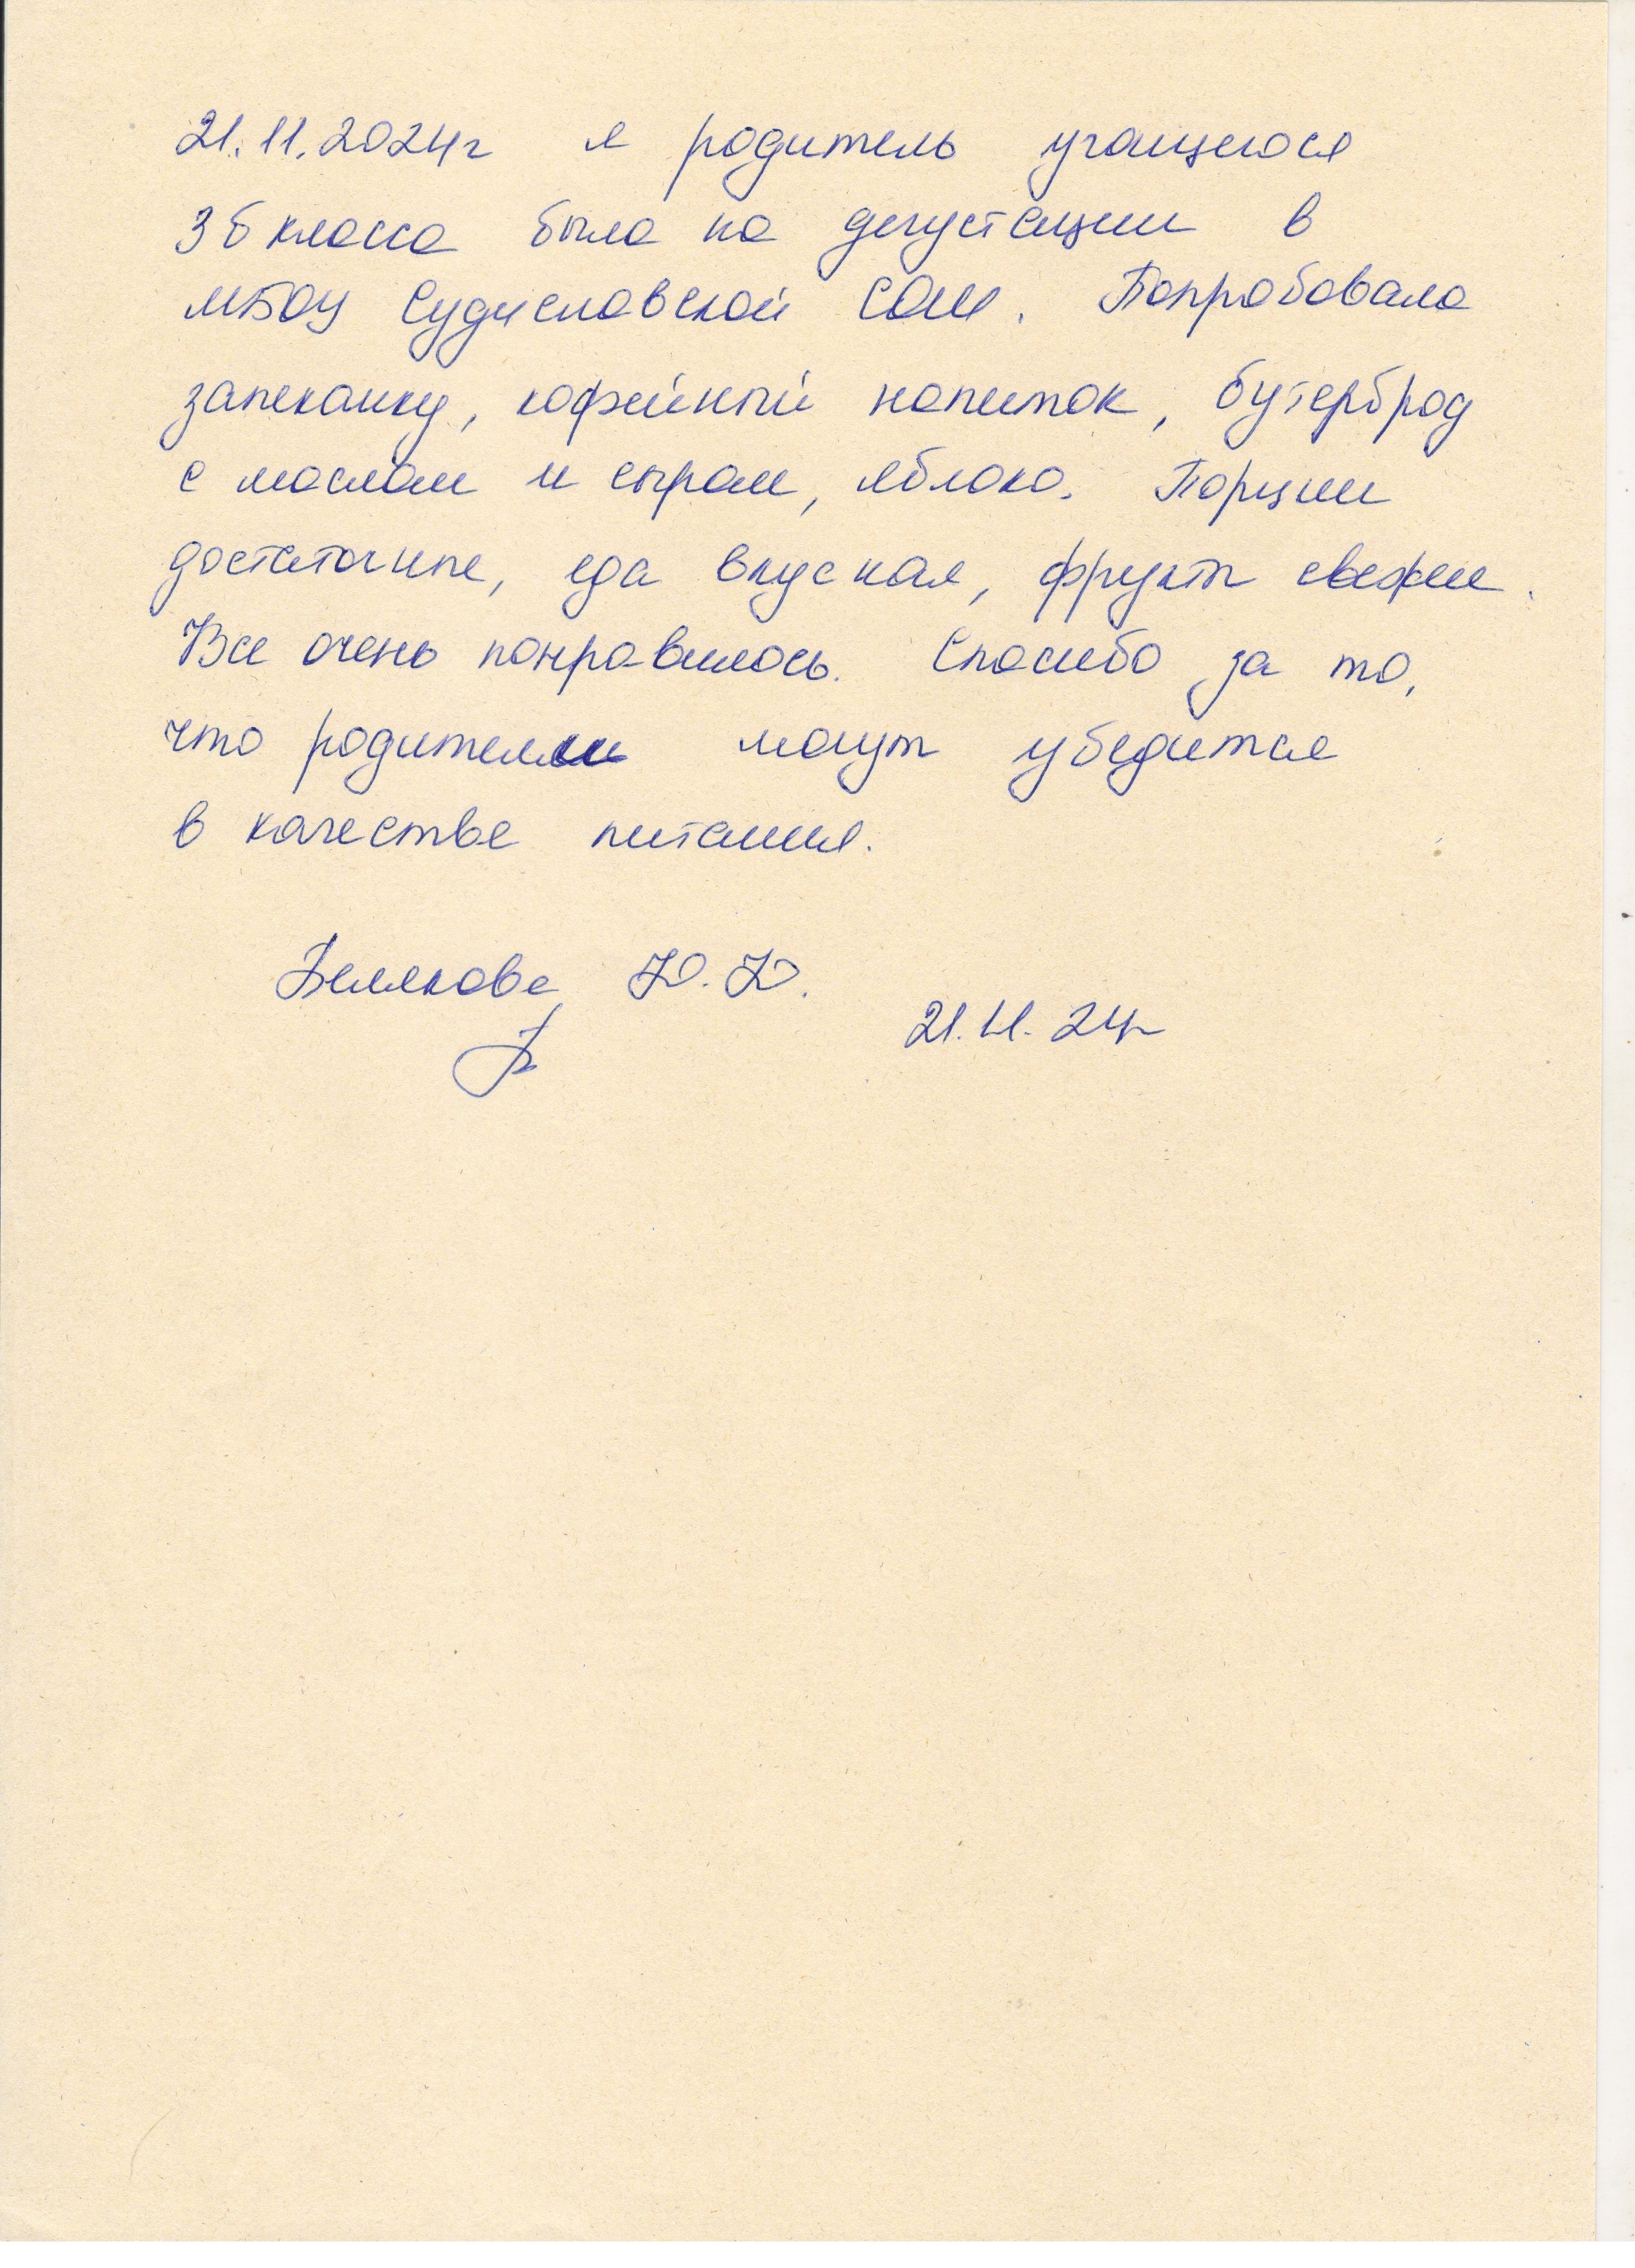 21.11.2024г я родитель учащегося
3б класса была на дегустации в
МБОУ Судиславской СОШ. Попробовала
запеканку, кофейный напиток, бутерброд
с маслом и сыром, яблоко. Порции
достаточные, еда вкусная, фрукты свежие.
Все очень понравилось. Спасибо за то,
что родители могут убедится
в качестве питания.
Белякова Ю.Ю.
21.11.24г